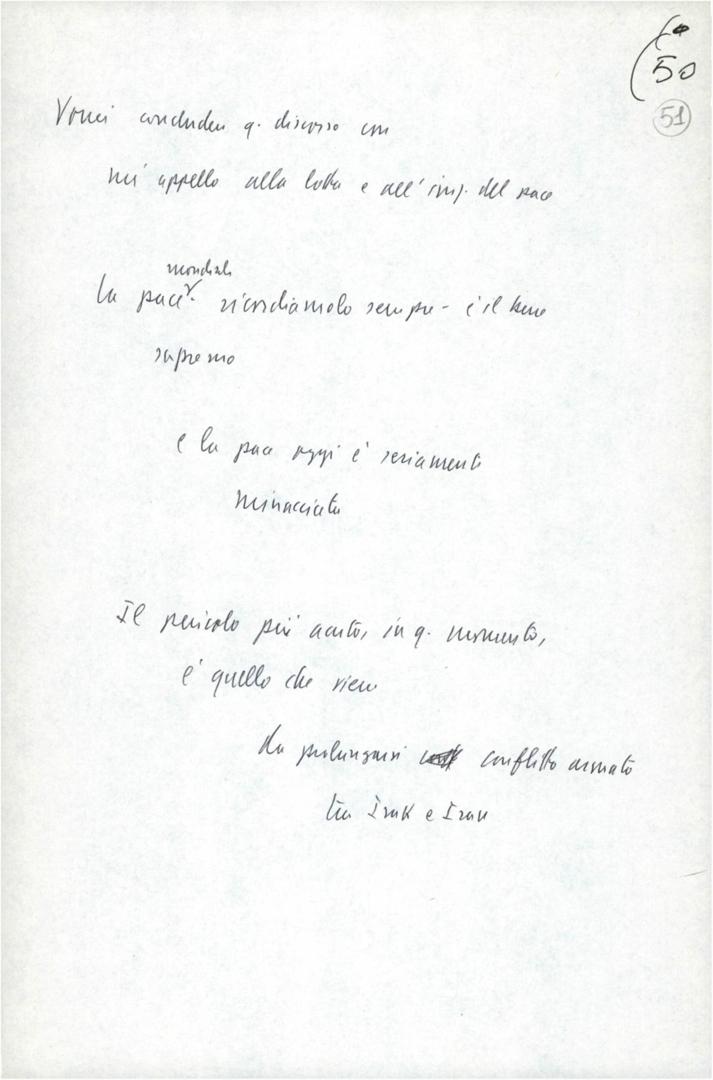 50
51
Vorrei concludere q. discorso con
un appello alla lotta e all'imp. del pace
mondiale
la pace - ricordiamolo sempre - è il bene
supremo
e la pace oggi è seriamente
minacciata
Il pericolo più acuto, in q. momento,
è quello che viene
da prolungarsi conflitto armato
tra Irak e Iran